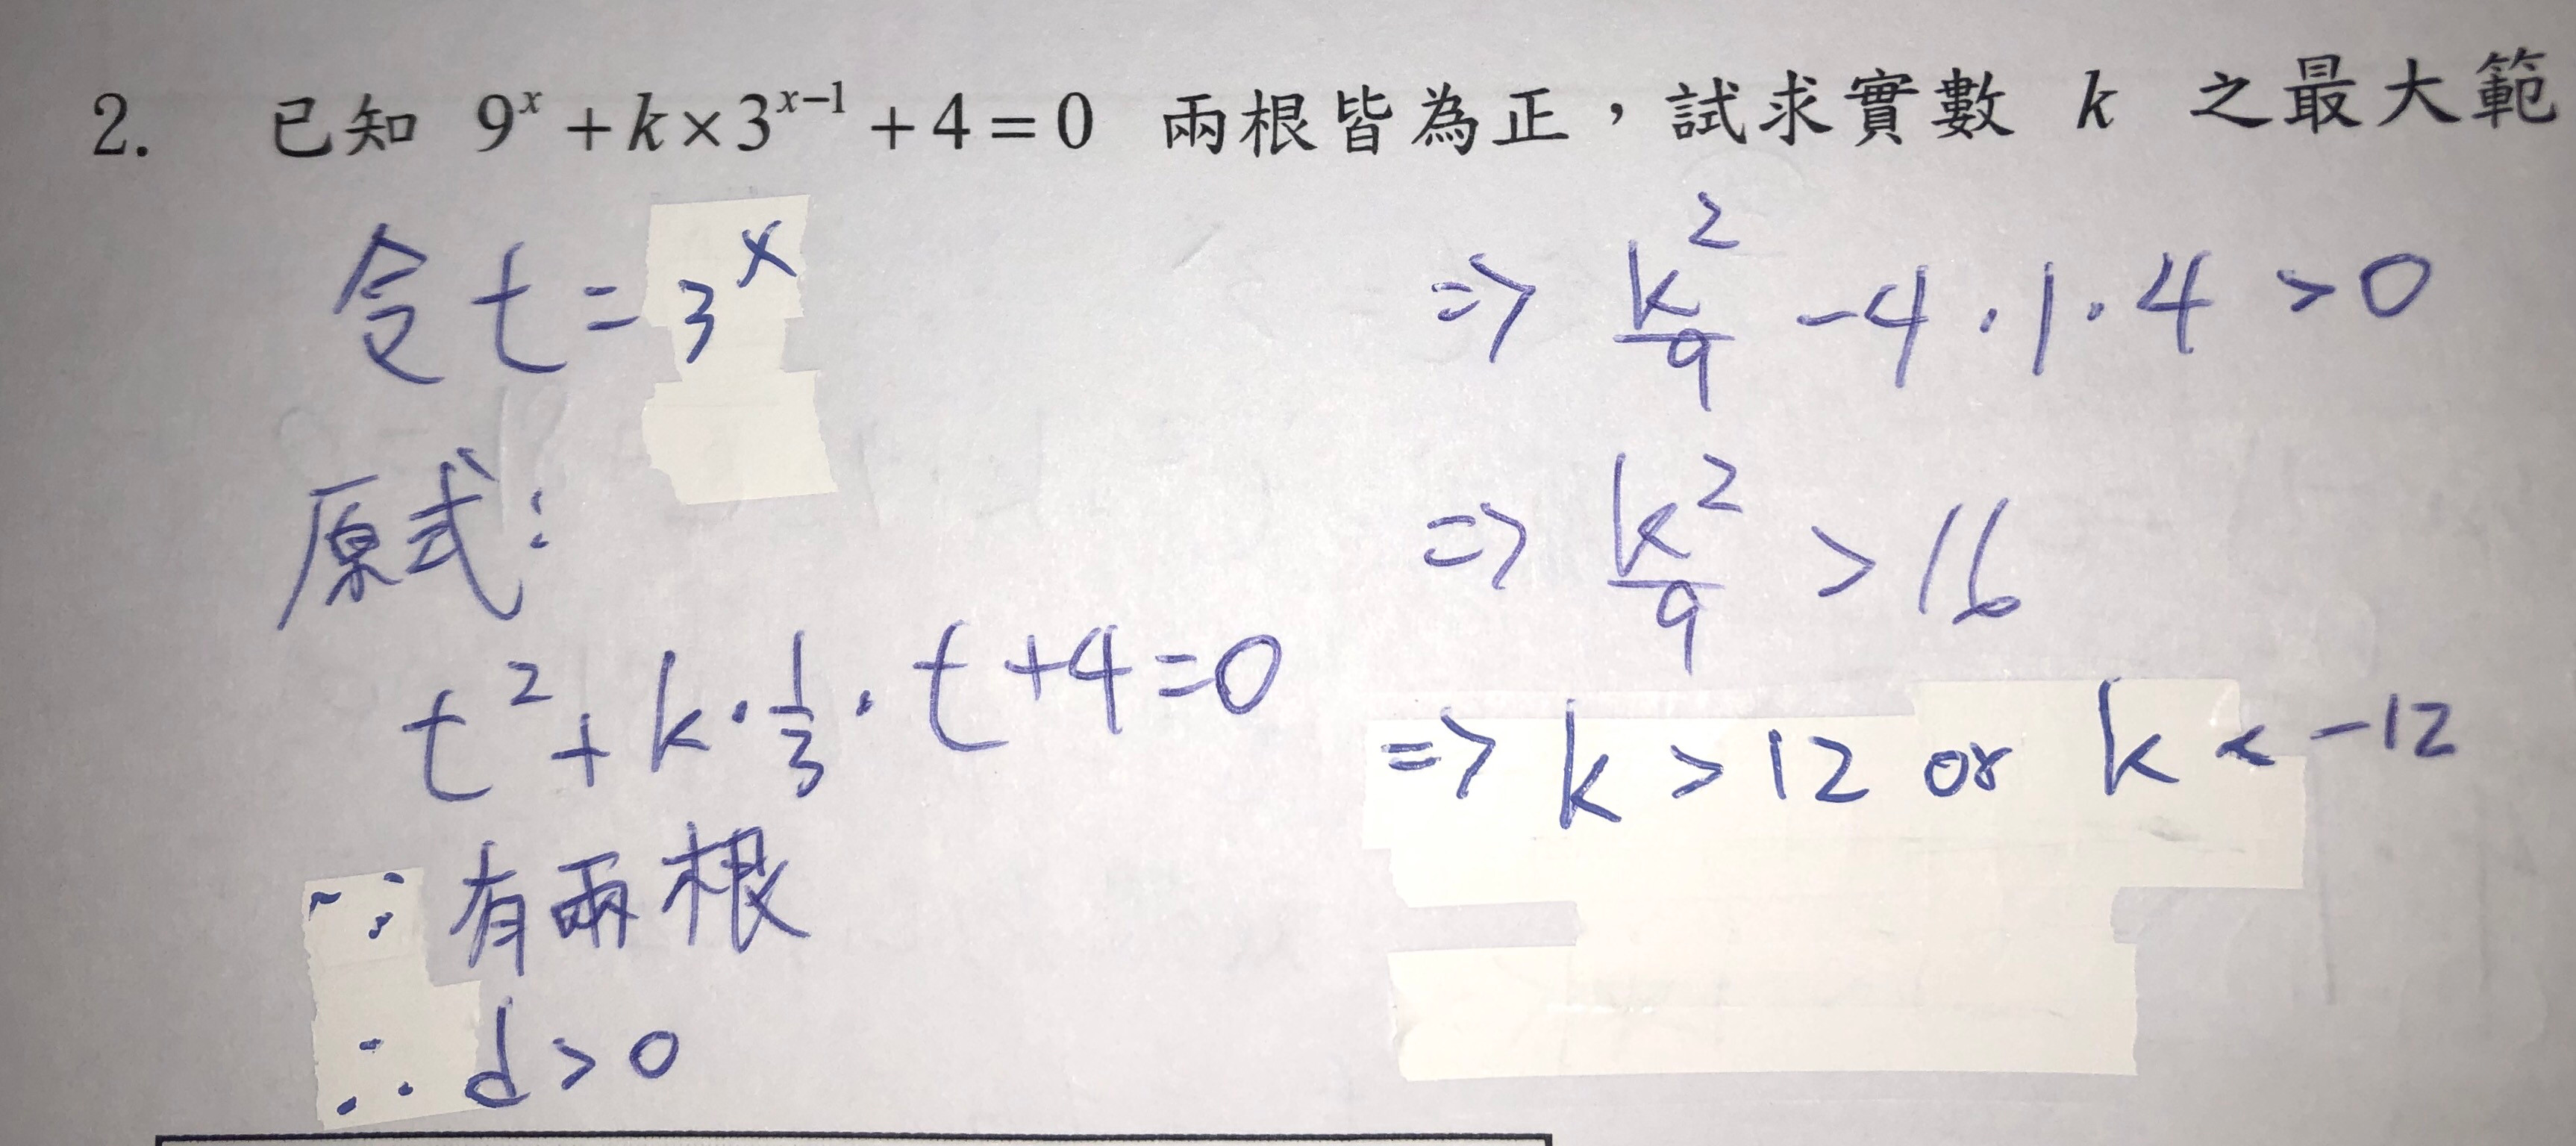 2. 已知 9^x + k × 3^{x-1} + 4 = 0 兩根皆為正，試求實數 k 之最大範
令 t = 3^x
原式:
t^2 + k · 1/3 · t + 4 = 0
∵ 有兩根
∴ d > 0
=> k^2/9 - 4 · 1 · 4 > 0
=> k^2/9 > 16
=> k > 12 or k < -12